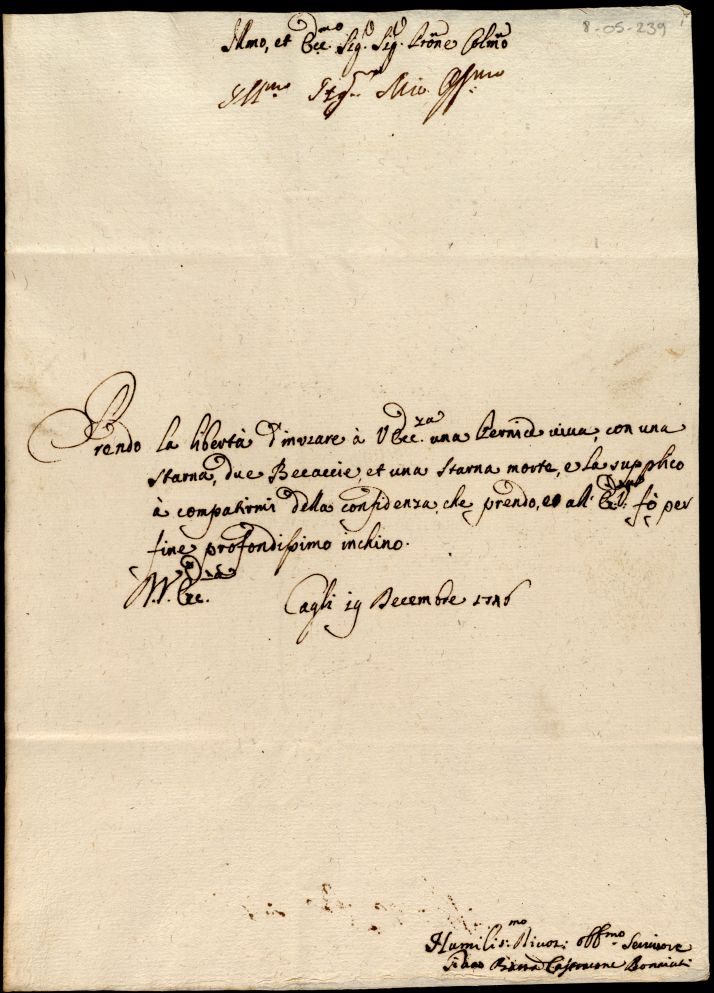 8-05-239
Illmo, et Ecc.mo Sig.r Sig.r Prone Colmo
Ill.mo Sig.r Mio Oss.mo
Prendo la libertà d'inviare à V Ecc.za una Pernice viua, con una
starna, due Beccaccie, et una starna morte, e la supplico
à compatirmi della confidenza, che prendo, ed all' fò per
fine profondissimo inchino.
Cagli 19 Decembre 1746
Humilis.mo Diuot: obb.mo Seruitore